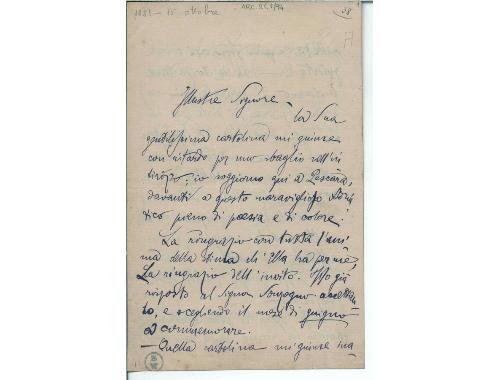 1881 - 15 ottobre
ARC.
38
Illustre Signore,
La Sua
gentilissima cartolina mi giunse
con ritardo per uno sbaglio nell'in
dirizzo; io soggiorno qui a Pescara,
davanti a questo maraviglioso Adria
tico pieno di poesia e di colore!
La ringrazio con tutta l'ani
ma della stima ch'Ella ha per me;
La ringrazio dell'invito. Ho già
risposto al Signor Sonzogno accettan
do, e scegliendo il mese di giugno
a commemorare.
— Quella cartolina mi giunse ina